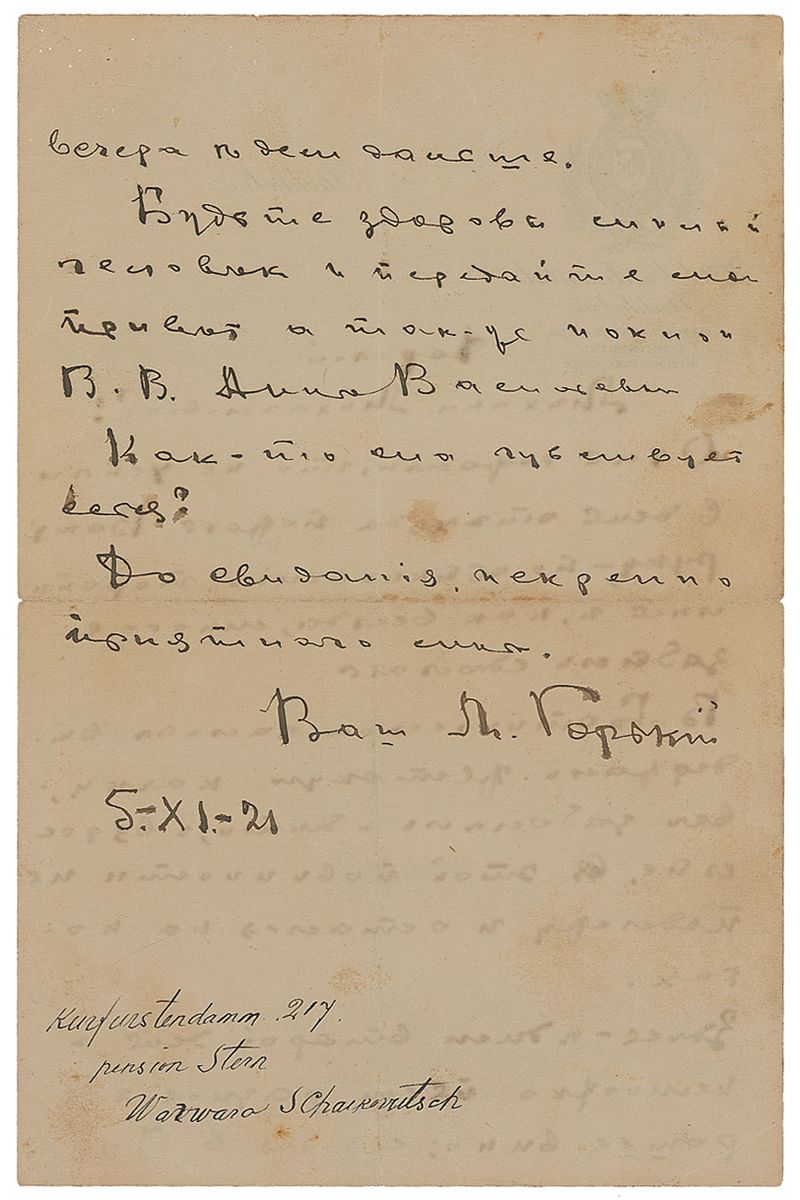 вечера идем дальше.
Будьте здоровы милый
человек и передайте мой
привет а так-же поклон
В. В. Анне Васильевне
Как-то она чувствует
себя?
До свиданія, искренно
приятного сна.
Ваш М. Горькій
5-XI.-21
Kurfurstendamm. 217.
pension Stern
Warwara Schaikewitsch